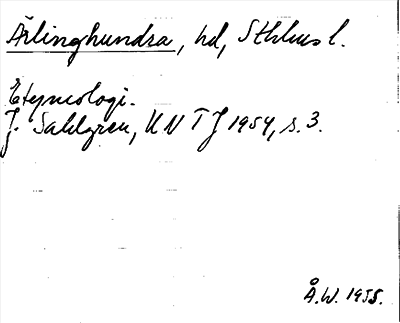 Ärlinghundra, hd, Sthlms l.
Etymologi.
J. Sahlgren, UNTJ 1954, s. 3.
Å.W. 1955.